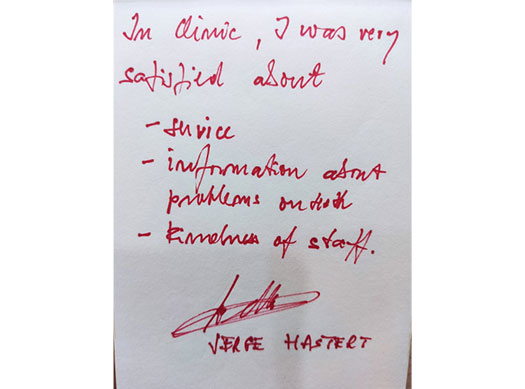 In Clinic, I was very
satisfied about
- service
- information about
problems on tooth
- kindness of staff.
HASTERT